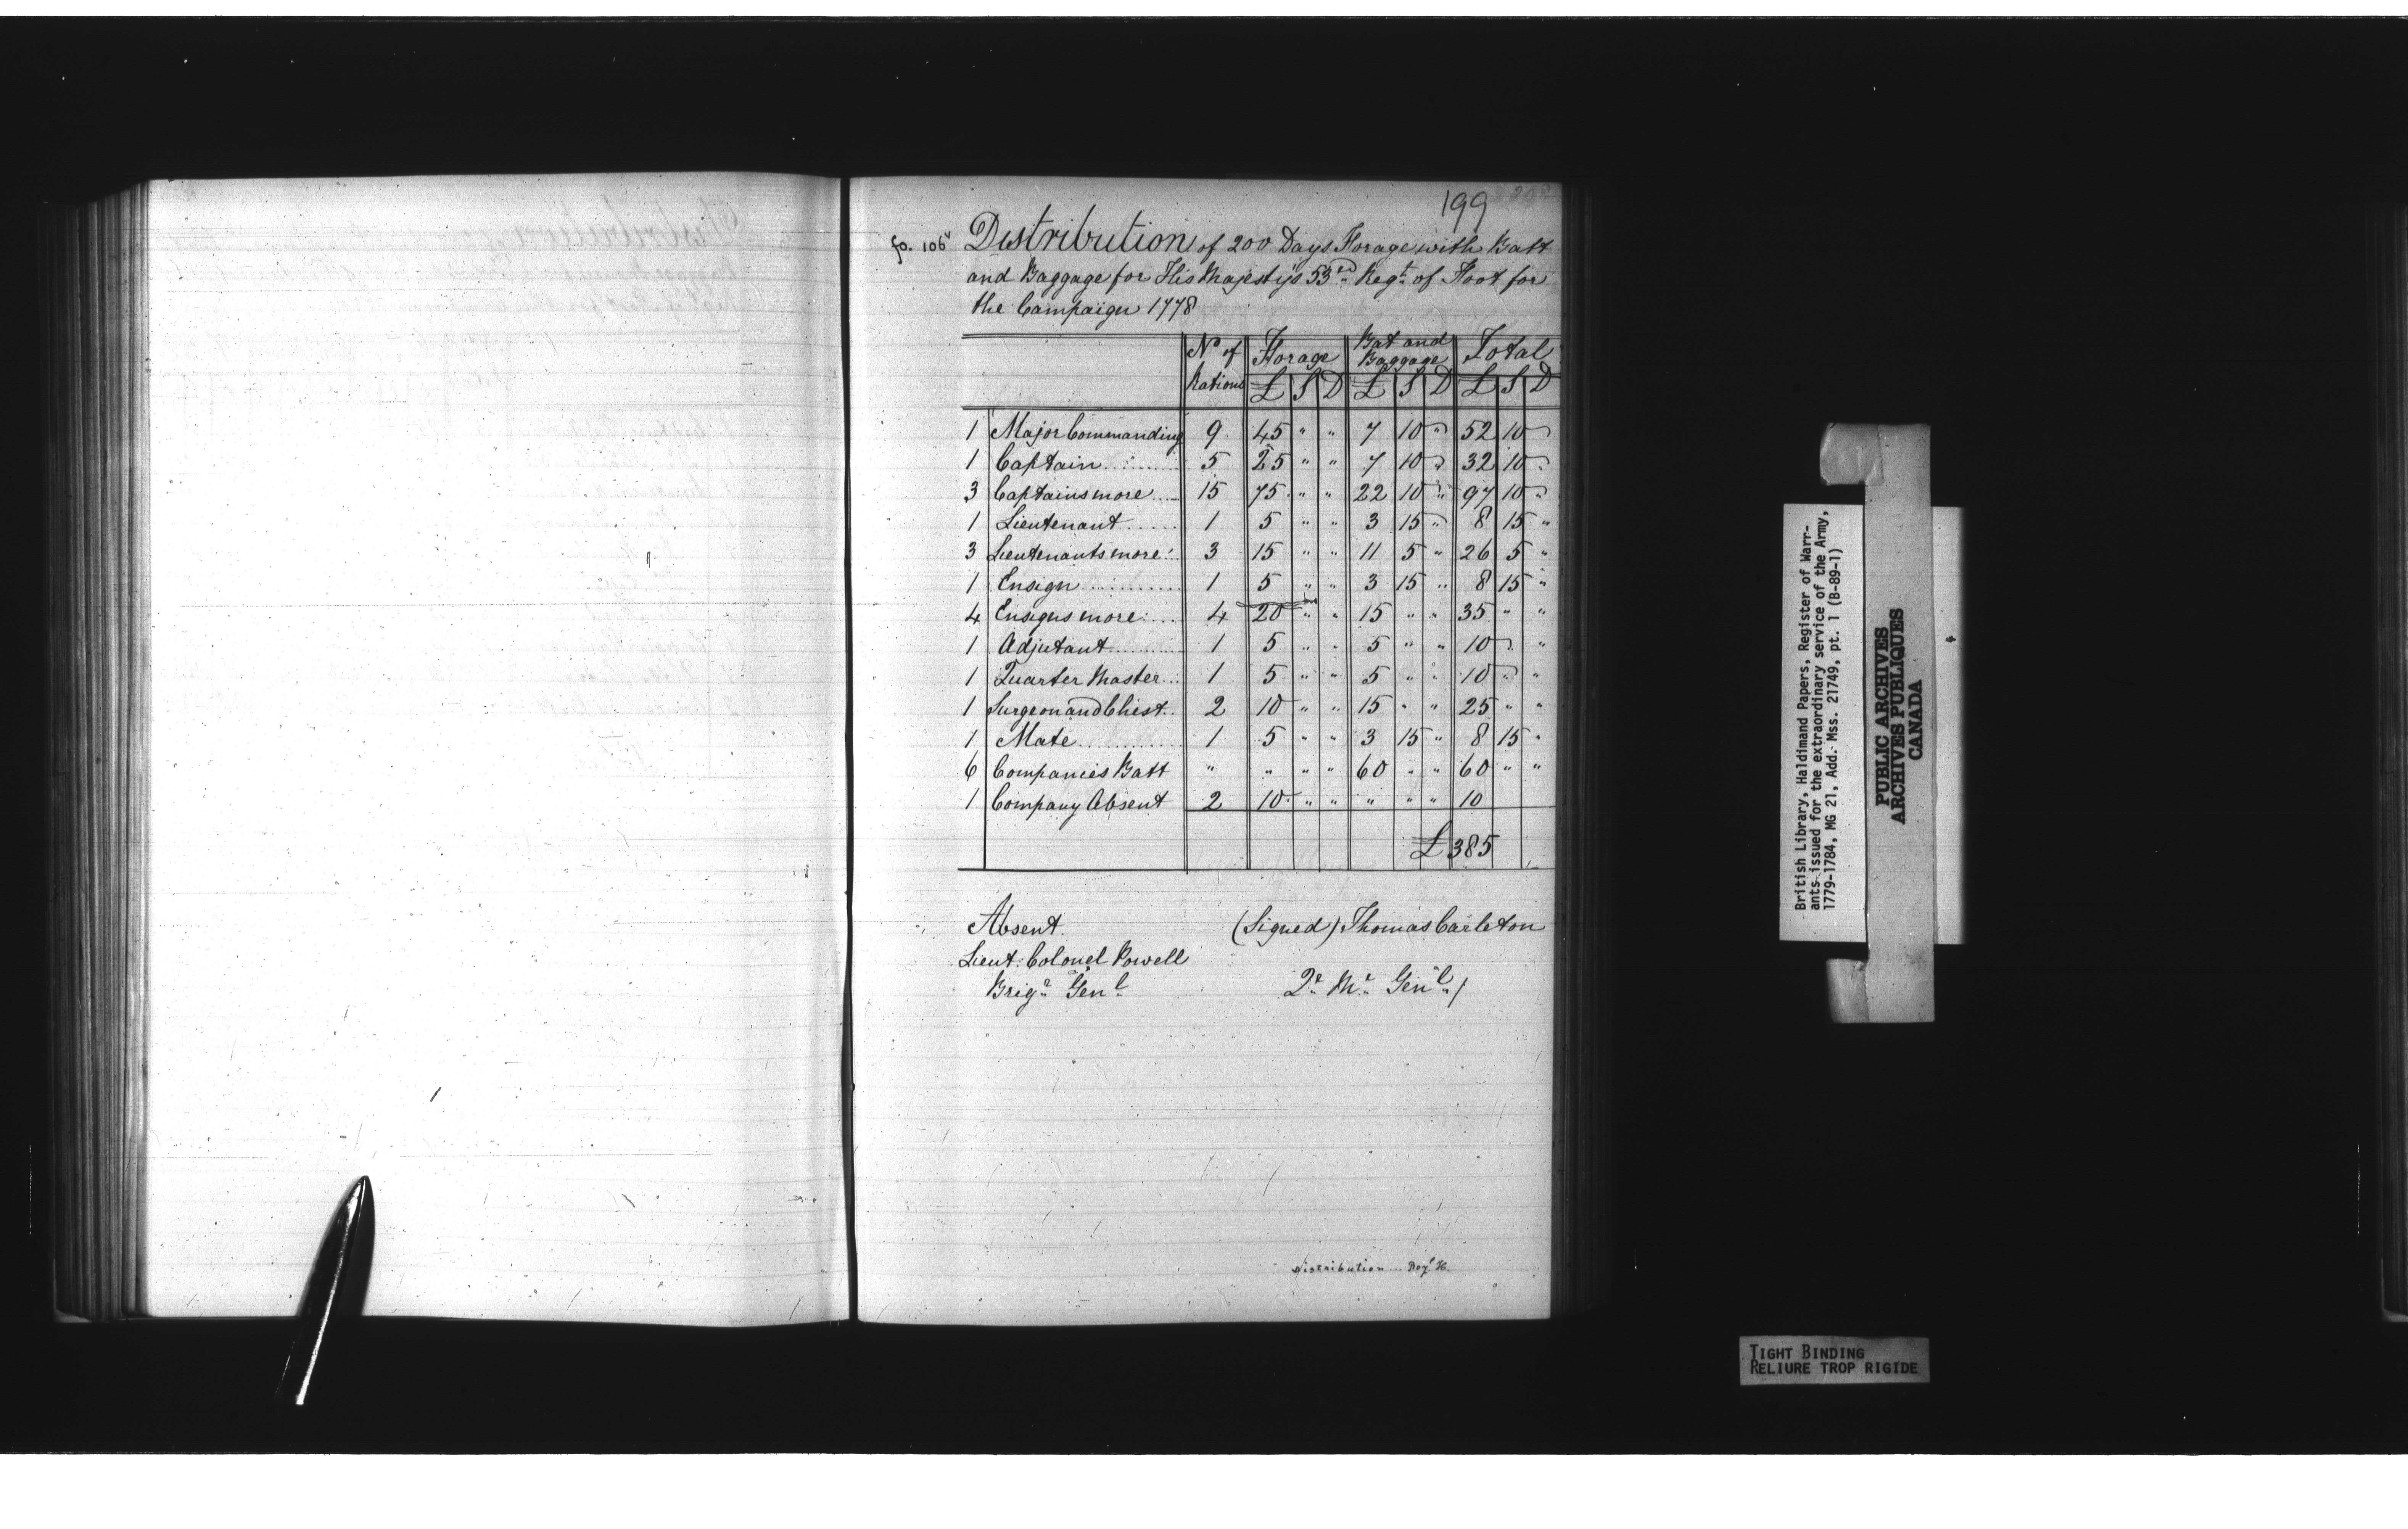 199
fo. 106v Distribution of 200 Days Forage with Batt
and Baggage for His Majesty's 53rd Regt. of Foot for
the Campaign 1778
No of Rations | Forage £ S D | Bat and Baggage £ S D | Total £ S D
1 Major Commanding 9 45 " " 7 10 " 52 10 "
1 Captain ........ 5 25 " " 7 10 " 32 10 "
3 Captains more .... 15 75 " " 22 10 " 97 10 "
1 Lieutenant ...... 1 5 " " 3 15 " 8 15 "
3 Lieutenants more .. 3 15 " " 11 5 " 26 5 "
1 Ensign .......... 1 5 " " 3 15 " 8 15 "
4 Ensigns more .... 4 20 " " 15 " " 35 " "
1 Adjutant ........ 1 5 " " 5 " " 10 " "
1 Quarter Master ... 1 5 " " 5 " " 10 " "
1 Surgeon and Chest .. 2 10 " " 15 " " 25 " "
1 Mate ........... 1 5 " " 3 15 " 8 15 "
6 Companies Batt " " " " 60 " " 60 " "
1 Company Absent 2 10 " " " " " 10
£ 385
Absent. (Signed) Thomas Carleton
Lieut: Colonel Powell
Brigr. Genl. Qr. Mr. Genl. /
distribution
British Library, Haldimand Papers, Register of Warr-
ants issued for the extraordinary service of the Army,
1779-1784, MG 21, Add. Mss. 21749, pt. 1 (B-89-1)
PUBLIC ARCHIVES
ARCHIVES PUBLIQUES
CANADA
TIGHT BINDING
RELIURE TROP RIGIDE